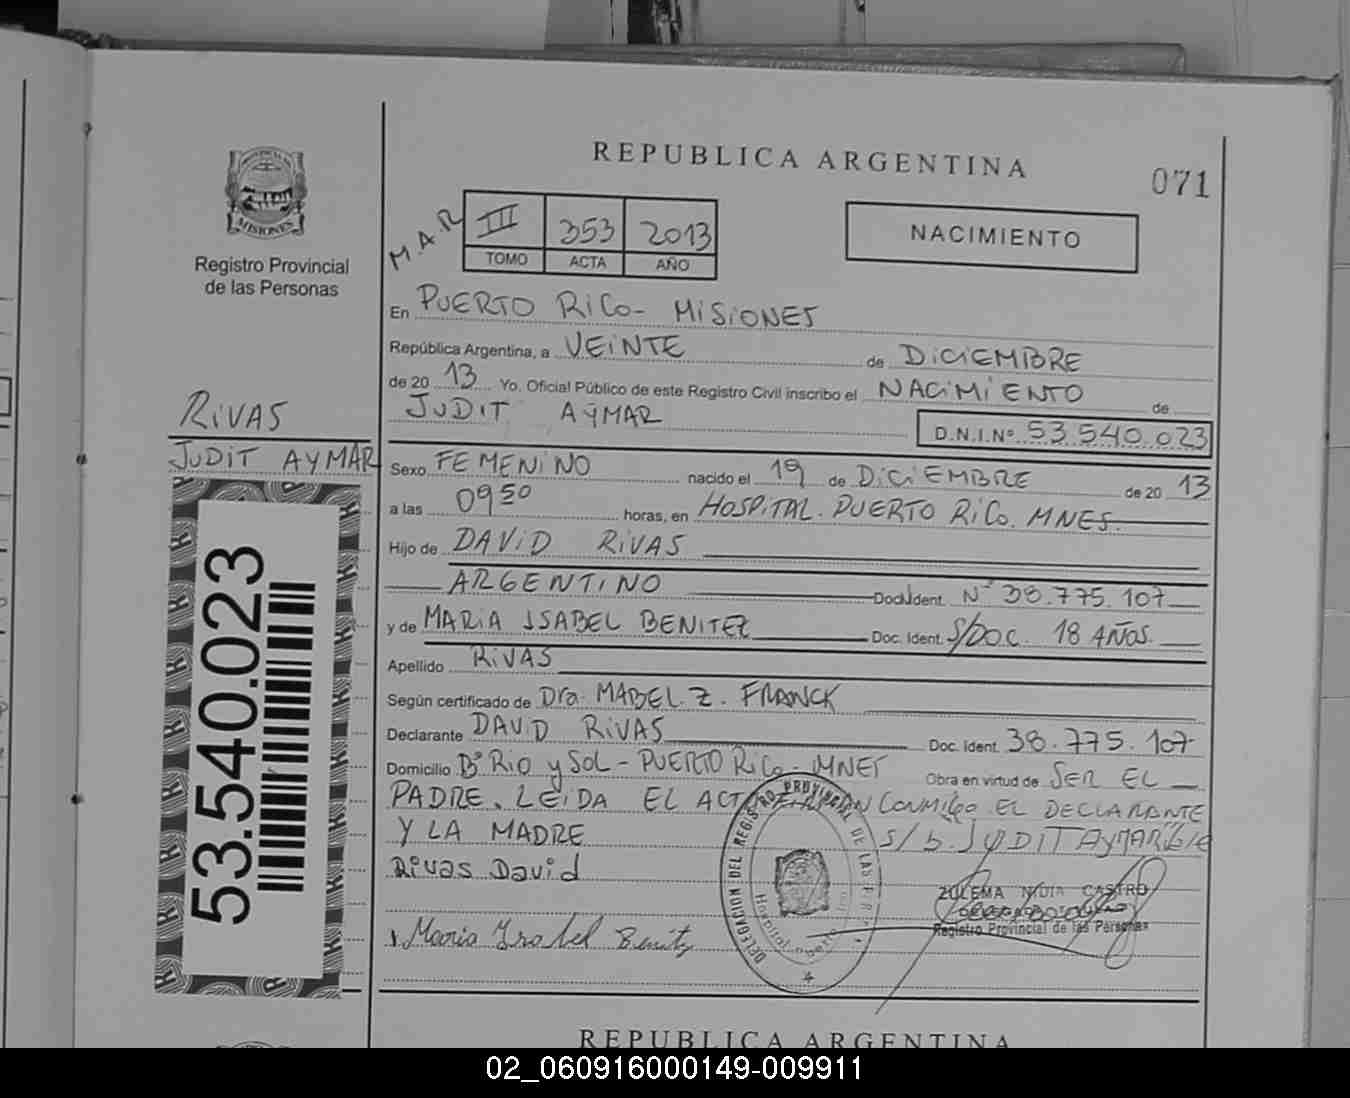 REPUBLICA ARGENTINA
071
PROVINCIA DE
MISIONES
Registro Provincial
de las Personas
M.A.R
III 353 2013
TOMO ACTA AÑO
NACIMIENTO
En PUERTO RICO - MISIONES
República Argentina, a VEINTE de DICIEMBRE
de 20 13 Yo. Oficial Público de este Registro Civil inscribo el NACIMIENTO de
JUDIT AYMAR
D.N.I.Nº 53.540.023
RIVAS
JUDIT AYMAR
53.540.023
Sexo FEMENINO nacido el 19 de DICIEMBRE de 20 13
a las 09 50 horas, en HOSPITAL. PUERTO RICO. MNES.
Hijo de DAVID RIVAS
ARGENTINO Doc. Ident. Nº 38.775.107
y de MARIA ISABEL BENITEZ Doc. Ident. S/DOC. 18 AÑOS.
Apellido RIVAS
Según certificado de Dra. MABEL. Z. FRANCK
Declarante DAVID RIVAS Doc. Ident. 38.775.107
Domicilio Bº RIO y SOL - PUERTO RICO - MNES Obra en virtud de SER EL
PADRE. LEIDA EL ACTA FIRMAN CONMIGO EL DECLARANTE
Y LA MADRE S/b. JUDIT AYMAR
Rivas David
Maria Isabel Benitez
DELEGACION DEL REGISTRO PROVINCIAL DE LAS
Hospital
ZULEMA NIDIA CASTRO
Registro Provincial de las Personas
REPUBLICA ARGENTINA
02_060916000149-009911